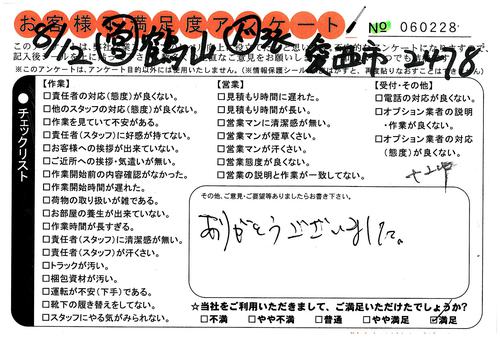 お客様満足度アンケート！
No 060228
8/12 鶴山 愛西市 2478
※このアンケートは、アンケート目的以外には使用いたしません。
チェックリスト
【作業】
□責任者の対応(態度)が良くない。
□他のスタッフの対応(態度)が良くない。
□作業を見ていて不安がある。
□責任者(スタッフ)に好感が持てない。
□お客様への挨拶が出来ていない。
□ご近所への挨拶・気遣いが無い。
□作業開始前の内容確認がなかった。
□作業開始時間が遅れた。
□荷物の取り扱いが雑である。
□お部屋の養生が出来ていない。
□作業時間が長すぎる。
□責任者(スタッフ)に清潔感が無い。
□責任者(スタッフ)が汗くさい。
□トラックが汚い。
□梱包資材が汚い。
□運転が不安(下手)である。
□靴下の履き替えをしてない。
□スタッフにやる気がみられない。
【営業】
□見積もり時間に遅れた。
□見積もり時間が長い。
□営業マンに清潔感が無い。
□営業マンが煙草くさい。
□営業マンが汗くさい。
□営業態度が良くない。
□営業の説明と作業が一致してない。
【受付・その他】
□電話の対応が良くない。
□オプション業者の説明
・作業が良くない。
□オプション業者の対応
(態度)が良くない。
その他、ご意見・ご要望等ありましたらお書き下さい。
ありがとうございました。
☆当社をご利用いただきまして、ご満足いただけたでしょうか?
□不満 □やや不満 □普通 □やや満足 ☑満足